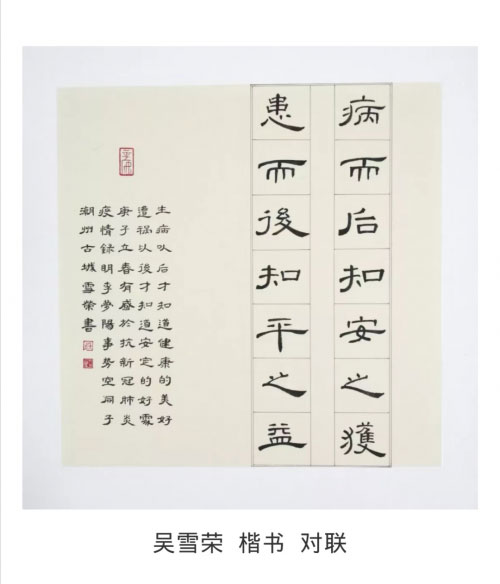 病而后知安之獲
患而後知平之益
生病以后才知道健康的美好
遭禍以後才知道安定的好處
庚子立春有感於抗新冠肺炎
疫情錄明李夢陽事勢空同子
潮州古城雪榮書
吴雪荣 楷书 对联